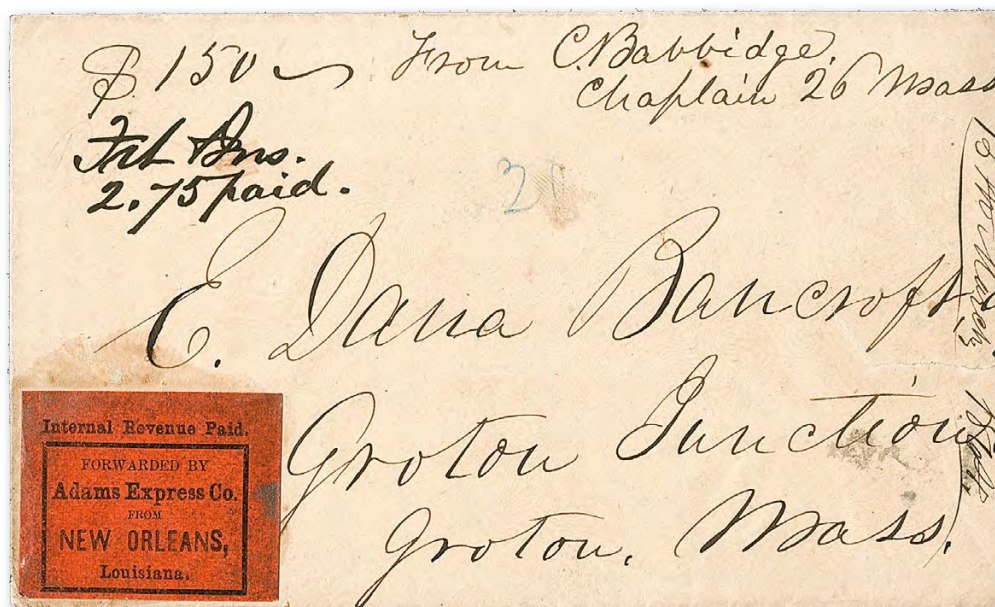 $ 150
From C. Babbidge,
Chaplain 26 Mass
Frt Ins.
2.75 paid.
20
E. Dana Bancroft
Groton Junction
Groton, Mass.
Internal Revenue Paid.
FORWARDED BY
Adams Express Co.
FROM
NEW ORLEANS,
Louisiana.